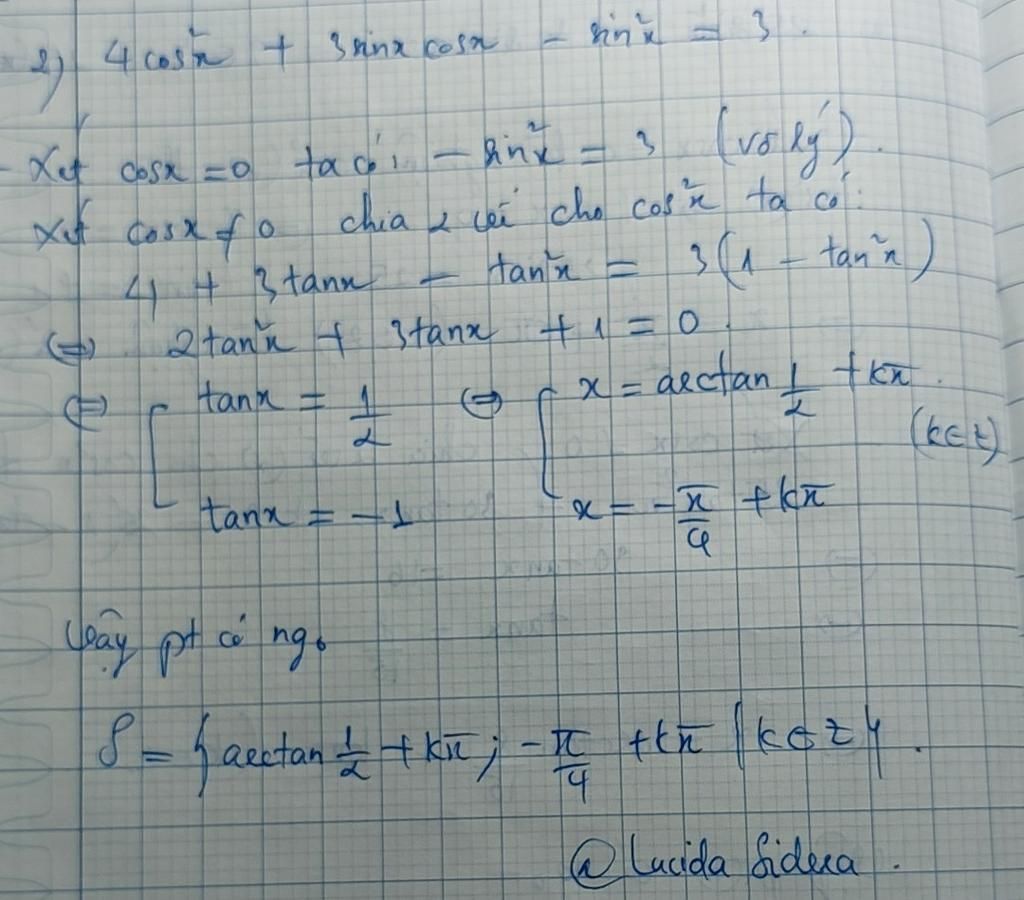 2) 4cos²x + 3sinxcosx - sin²x = 3.
- Xét cosx = 0 ta có: - sin²x = 3 (vô lý).
Xét cosx ≠ 0 chia 2 vế cho cos²x ta có:
4 + 3tanx - tan²x = 3(1 - tan²x)
⇔ 2tan²x + 3tanx + 1 = 0.
⇔ [ tanx = 1/2 ⇔ [ x = arctan 1/2 + kπ.
(k∈Z)
tanx = -1 x = -π/4 + kπ
Vậy pt có ng:
S = { arctan 1/2 + kπ; -π/4 + kπ | k∈Z }.
@Lucida Sidera.